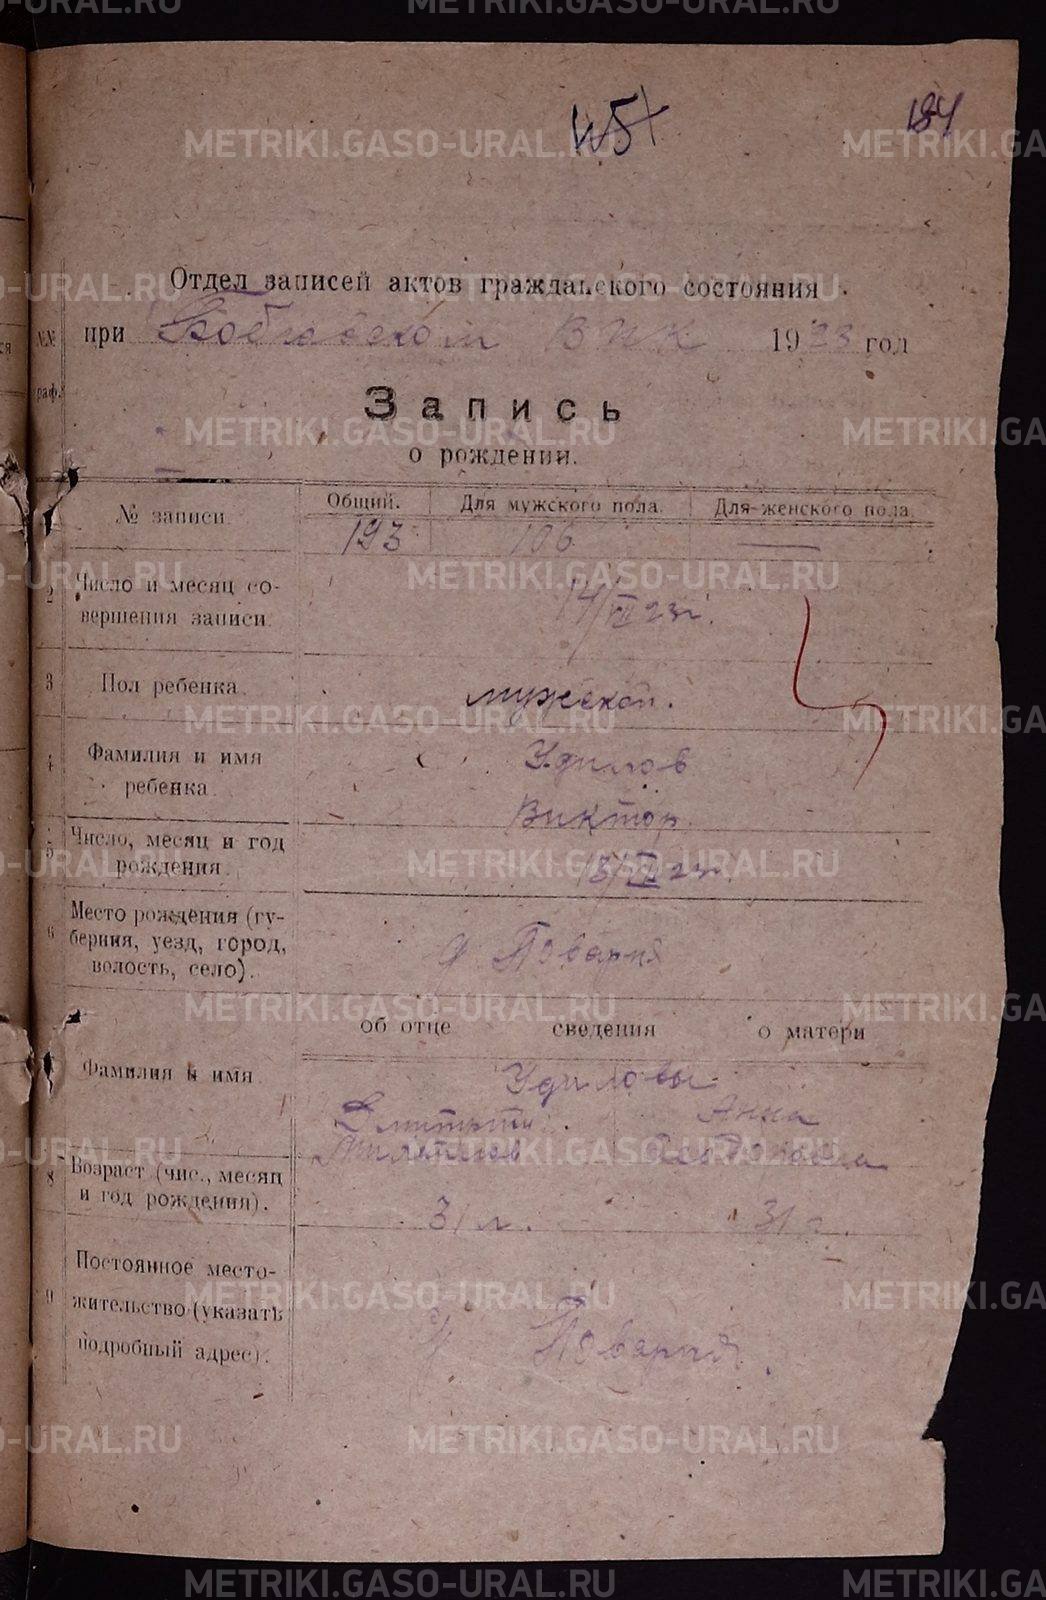 184
Отдел записей актов гражданского состояния
при ВИК 1923 год
Запись
о рождении.
№№
граф.
№ записи.
Общий. Для мужского пола. Для женского пола.
193 106 —
2 Число и месяц со-
вершения записи.
14/VII 23 г.
3 Пол ребенка. мужской.
4 Фамилия и имя
ребенка
Удилов
Виктор.
5 Число, месяц и год
рождения.
6 Место рождения (гу-
берния, уезд, город,
волость, село).
д Поварня
об отце сведения о матери
Фамилия и имя
Удиловы
Дмитрий Анна
Федоровна
8 Возраст (чис., месяц
и год рождения).
31 л. 31 г.
9 Постоянное место-
жительство (указать
подробный адрес).
д Поварня.
METRIKI.GASO-URAL.RU